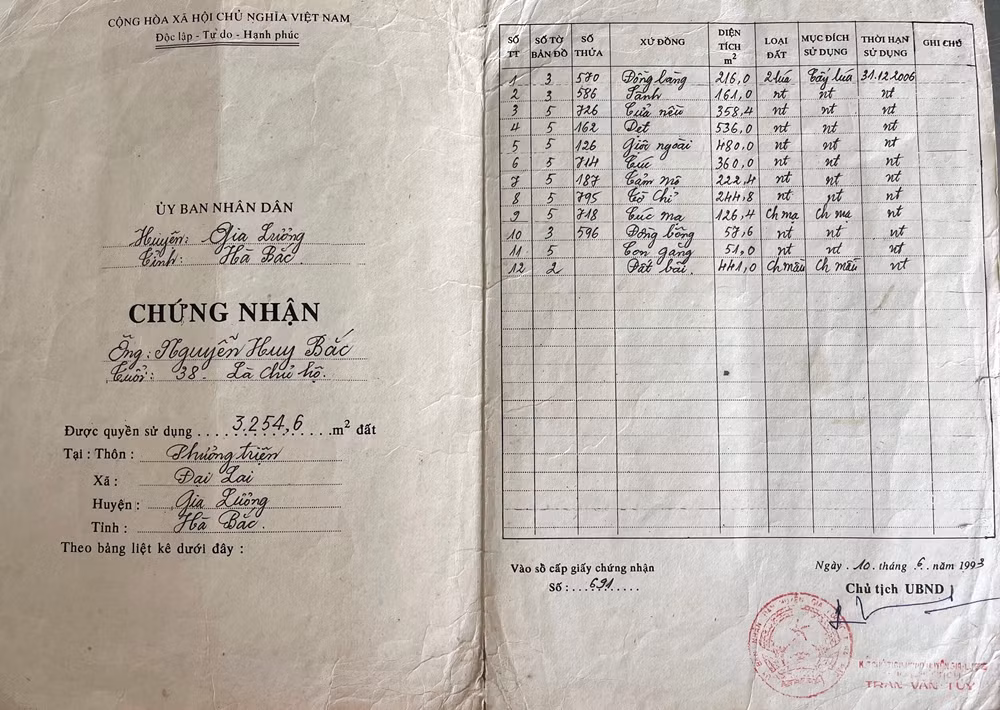 CỘNG HÒA XÃ HỘI CHỦ NGHĨA VIỆT NAM
Độc lập - Tự do - Hạnh phúc
ỦY BAN NHÂN DÂN
Huyện: Gia Lương
Tỉnh: Hà Bắc
CHỨNG NHẬN
Ông: Nguyễn Huy Bắc
Tuổi: 38. Là chủ hộ.
Được quyền sử dụng 3.254,6 m² đất
Tại : Thôn : Phương triện
Xã : Đại Lai
Huyện : Gia Lương
Tỉnh : Hà Bắc.
Theo bảng liệt kê dưới đây :
SỐ TT SỐ TỜ BẢN ĐỒ SỐ THỬA XỨ ĐỒNG DIỆN TÍCH m² LOẠI ĐẤT MỤC ĐÍCH SỬ DỤNG THỜI HẠN SỬ DỤNG GHI CHÚ
1 3 570 Đồng làng 216,0 2 lúa Cấy lúa 31.12.2006
2 3 586 Sành 161,0 nt nt nt
3 5 726 Cửa nều 358,4 nt nt nt
4 5 162 Dẹt 536,0 nt nt nt
5 5 126 Giộc ngoài 480,0 nt nt nt
6 5 714 Cúc 360,0 nt nt nt
7 5 187 Cảm mô 222,4 nt nt nt
8 5 795 244,8 nt nt nt
9 5 718 Cúc mạ 126,4 Ch mạ Ch mạ nt
10 3 596 Đồng bông 57,6 nt nt nt
11 5 Con gảng 51,0 nt nt nt
12 2 Đất bãi. 441,0 Ch mầu Ch mầu nt
Vào sổ cấp giấy chứng nhận
Số : 691
Ngày 10 tháng 6 năm 1993
Chủ tịch UBND
TRẦN VĂN TÚY